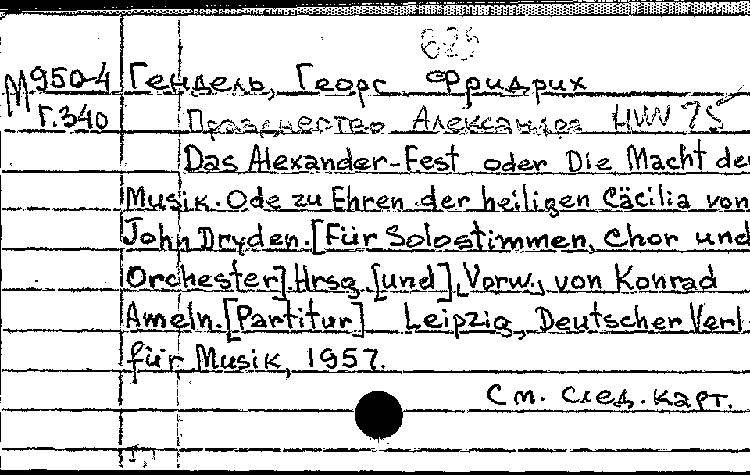 625
М950-4 Гендель, Георг Фридрих
Г.340 Празднество Александра HWV 75
Das Alexander-Fest oder Die Macht der
Musik. Ode zu Ehren der heiligen Cäcilia von
John Dryden. [Für Solostimmen, Chor und
Orchester]. Hrsg. [und] Vorw. von Konrad
Ameln. [Partitur] Leipzig, Deutscher Verl.
für Musik, 1957.
См. след. карт.